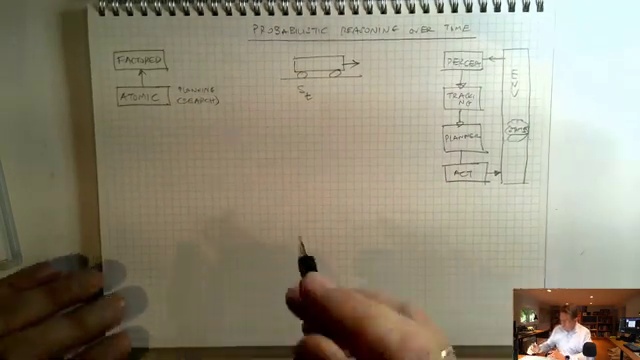 PROBABILISTIC REASONING OVER TIME
FACTORED
ATOMIC
PLANNING
(SEARCH)
S_t
PERCEPT
TRACK
ING
PLANNER
ACT
ENV
STATE